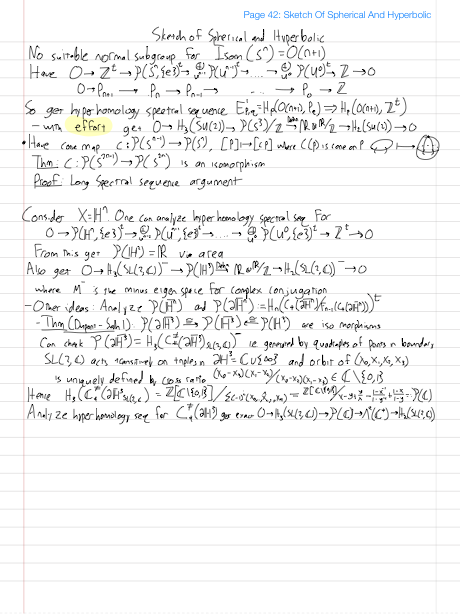 Page 42: Sketch Of Spherical And Hyperbolic
Sketch of Spherical and Hyperbolic
No suitable normal subgroup for Isom(Sⁿ)=O(n+1)
Have 0→ℤᵗ→P(Sⁿ,{e})ᵗ→⊕P(Uⁿ⁻¹)ᵗ→...→⊕P(U⁰)ᵗ→ℤ→0
0→Pₙ₊₁→Pₙ→Pₙ₋₁→...→P₀→ℤ
So get hyperhomology spectral sequence ⇒ Hₚ(O(n+1), ℤᵗ)
- with effort get 0→H₃(SU(2))→P(S³)/ℤ→ℝ⊗ℝ/ℤ→H₂(SU(2))→0
• Have cone map C:P(Sⁿ⁻¹)→P(Sⁿ), [P]↦[CP] where C(P) is cone on P
Thm: C:P(S²ⁿ⁻¹)→P(S²ⁿ) is an isomorphism
Proof: Long Spectral sequence argument
Consider X=ℍⁿ. One can analyze hyperhomology spectral seq for
0→P(ℍⁿ,{e})ᵗ→⊕P(Uⁿ⁻¹,{e})ᵗ→...→⊕P(U⁰,{e})ᵗ→ℤᵗ→0
From this get P(ℍ²)=ℝ via area
Also get 0→H₃(SL(2,ℂ))⁻→P(ℍ³)→ℝ⊗ℝ/ℤ→H₂(SL(2,ℂ))⁻→0
where M⁻ is the minus eigenspace for complex conjugation
- Other ideas: Analyze P(ℍ̄ⁿ) and P(∂ℍⁿ)=Hₙ
- Thm (Dupont-Sah): P(∂ℍ³)≅P(ℍ̄³)≅P(ℍ³) are isomorphisms
Can check P(∂ℍ³)=H₃(C(∂ℍ³)SL(2,ℂ))⁻ ie generated by quadruples of points in boundary
SL(2,ℂ) acts transitively on triples in ∂ℍ³=ℂ∪{∞} and orbit of (x₀,x₁,x₂,x₃)
is uniquely defined by cross ratio ∈ℂ\{0,1}
Hence =P(ℂ)
Analyze hyperhomology seq for C(∂ℍ³) get exact 0→H₃(SL(2,ℂ))→P(ℂ)→Λ²(ℂˣ)→H₂(SL(2,ℂ))